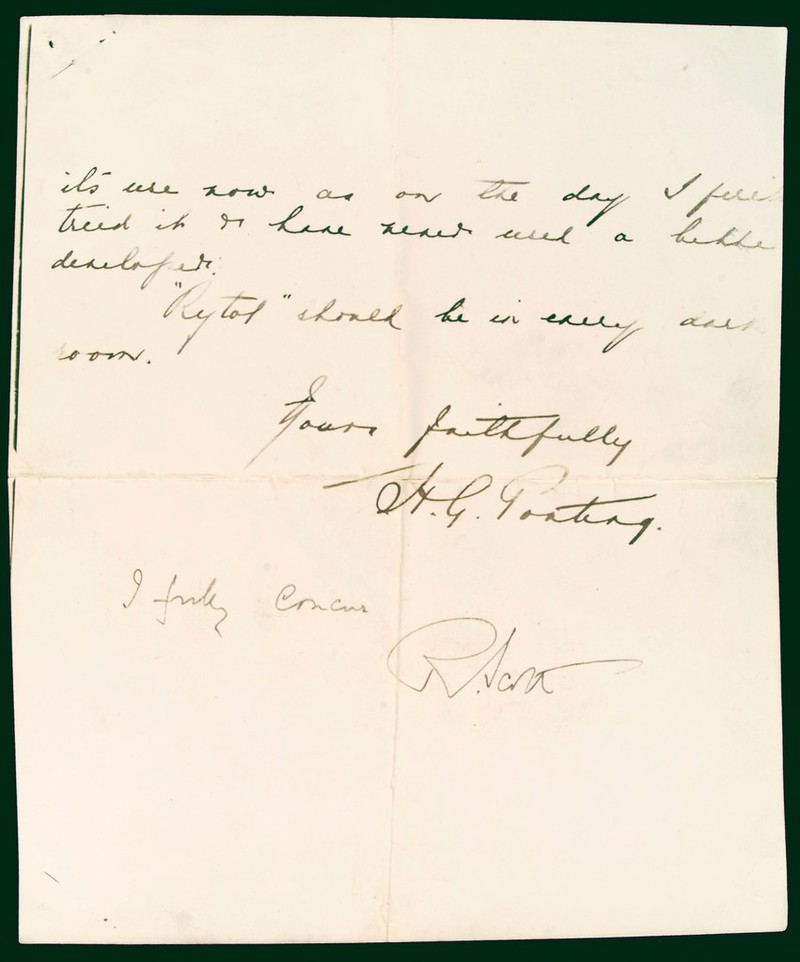 it's use now as on the day I first
tried it & have never used a better
developer.
"Rytol" should be in every dark
room.
Yours faithfully
H. G. Ponting.
I fully concur
R. Scott